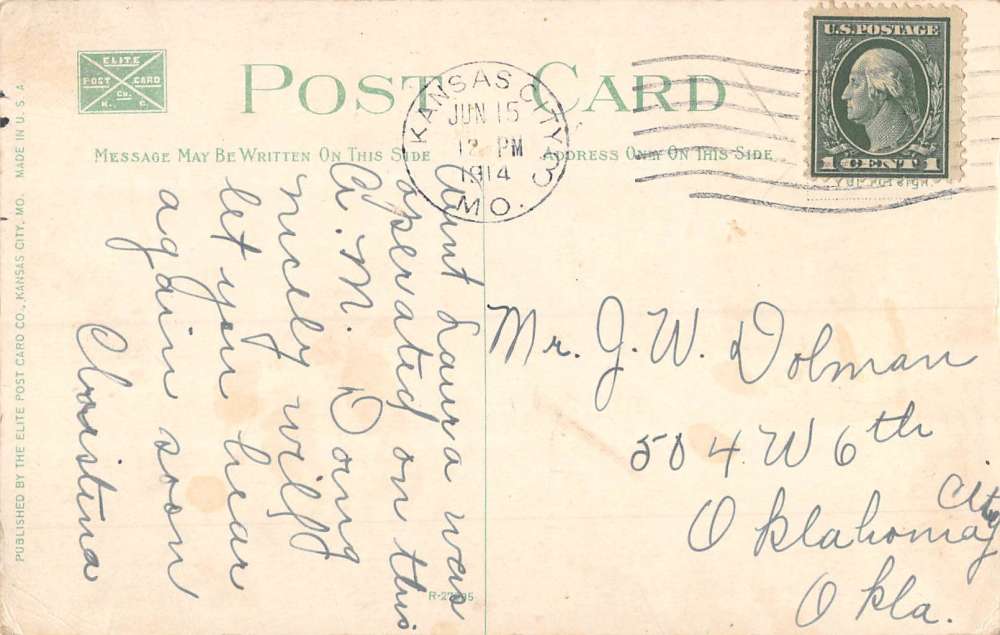 ELITE
POST CARD
Co.
K. C.
POST CARD
MESSAGE MAY BE WRITTEN ON THIS SIDE
ADDRESS ONLY ON THIS SIDE
KANSAS CITY
JUN 15
12 PM
1914
MO.
3
U.S. POSTAGE
1 CENT 1
Aunt Laura was
operated on this
A.M. Doing
nicely will
let you hear
again soon
Christina
Mr. J. W. Dolman
504 W 6th
Oklahoma City
Okla.
PUBLISHED BY THE ELITE POST CARD CO., KANSAS CITY, MO. MADE IN U.S.A.